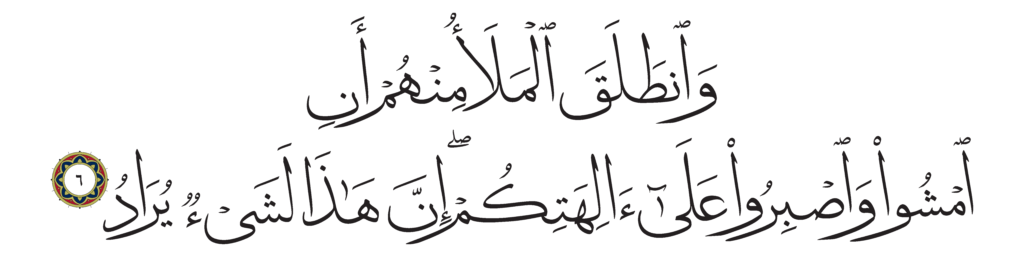 وَٱنطَلَقَ ٱلْمَلَأُ مِنْهُمْ أَنِ
ٱمْشُوا۟ وَٱصْبِرُوا۟ عَلَىٰٓ ءَالِهَتِكُمْ ۖ إِنَّ هَـٰذَا لَشَىْءٌ يُرَادُ ٦